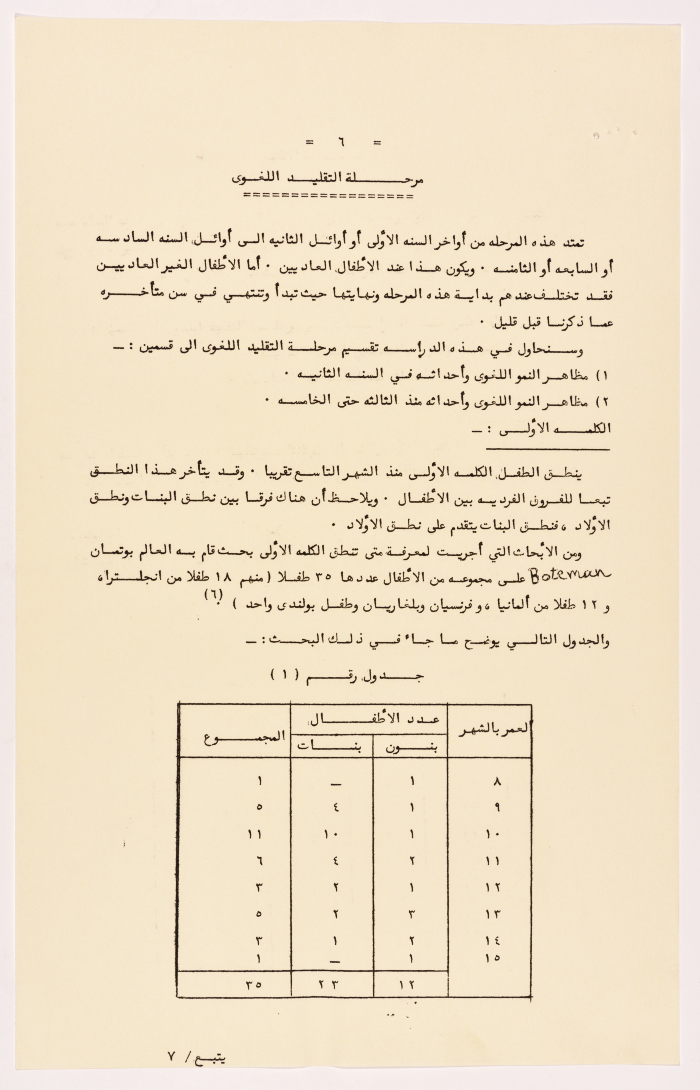 = ٦ =
مرحلة التقليد اللغوى
تمتد هذه المرحله من أواخر السنه الأولى أو أوائل الثانيه الى أوائل السنه السادسه
أو السابعه أو الثامنه ٠ ويكون هذا عند الأطفال العاديين ٠ أما الأطفال الغير العاديين
فقد تختلف عندهم بداية هذه المرحله ونهايتها حيث تبدأ وتنتهي في سن متأخره
عما ذكرنا قبل قليل ٠
وسنحاول في هذه الدراسه تقسيم مرحلة التقليد اللغوى الى قسمين : ــ
١) مظاهر النمو اللغوى وأحداثه في السنه الثانيه ٠
٢) مظاهر النمو اللغوى وأحداثه منذ الثالثه حتى الخامسه ٠
الكلمه الأولى : ــ
ينطق الطفل الكلمه الأولى منذ الشهر التاسع تقريبا ٠ وقد يتأخر هذا النطق
تبعا للفروق الفرديه بين الأطفال ٠ ويلاحظ أن هناك فرقا بين نطق البنات ونطق
الأولاد ، فنطق البنات يتقدم على نطق الأولاد ٠
ومن الأبحاث التي أجريت لمعرفة متى تنطق الكلمه الأولى بحث قام به العالم بوتمان
Boteman على مجموعه من الأطفال عددها ٣٥ طفلا (منهم ١٨ طفلا من انجلترا،
و ١٢ طفلا من ألمانيا ، و فرنسيان وبلغاريان وطفل بولندى واحد ) ٠(٦)
والجدول التالي يوضح ما جاء في ذلك البحث : ــ
جدول رقم (١)
العمر بالشهر عدد الأطفال المجموع
بنون بنات
٨ ١ ــ ١
٩ ١ ٤ ٥
١٠ ١ ١٠ ١١
١١ ٢ ٤ ٦
١٢ ١ ٢ ٣
١٣ ٣ ٢ ٥
١٤ ٢ ١ ٣
١٥ ١ ــ ١
١٢ ٢٣ ٣٥
يتبع / ٧